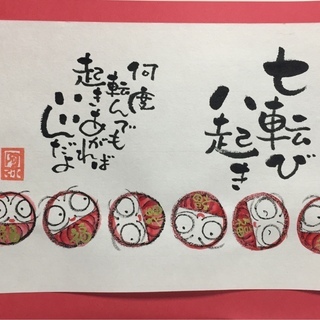 七転び
八起き
何度
転んでも
起きあがれば
いいんだよ